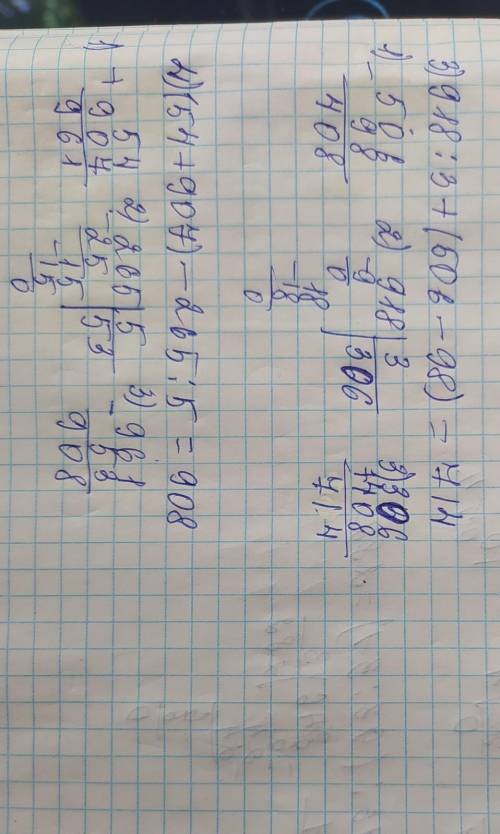 3) 918 : 3 + (506 - 98) = 714
1) - 506 2) 918 | 3 3) 306
98 -9 | 306 +408
408 0 714
18
-18
0
4) (54 + 907) - 265 : 5 = 908
1) + 54 2) -265 | 5 3) - 961
907 25 | 53 53
961 -15 908
15
0